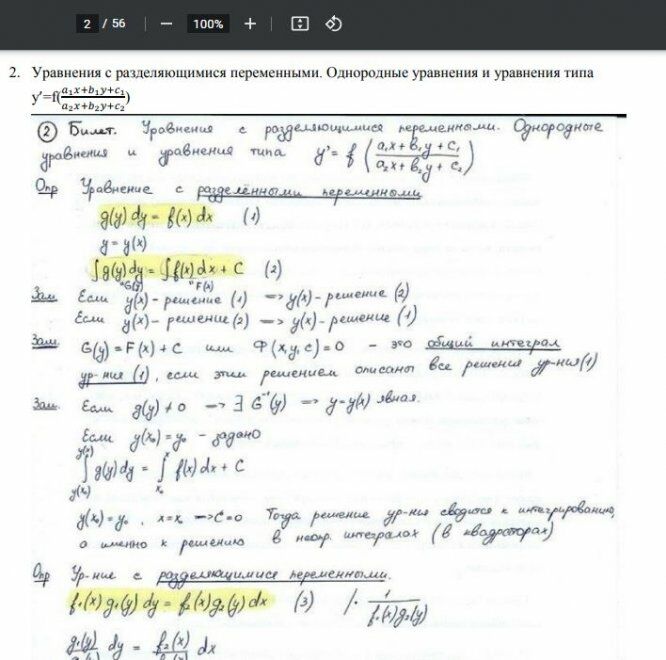 2 / 56 — 100% +
2. Уравнения с разделяющимися переменными. Однородные уравнения и уравнения типа
y'=f((a₁x+b₁y+c₁)/(a₂x+b₂y+c₂))
② Билет. Уравнения с разделяющимися переменными. Однородные
уравнения и уравнения типа y' = f ((a₁x + b₁y + c₁)/(a₂x + b₂y + c₂))
Опр Уравнение с разделёнными переменными
g(y) dy = f(x) dx (1)
y = y(x)
∫g(y) dy = ∫f(x) dx + C (2)
"G(y) "F(x)
Зам Если y(x) - решение (1) => y(x) - решение (2)
Если y(x) - решение (2) => y(x) - решение (1)
Зам. G(y) = F(x) + C или Φ(x, y, c) = 0 - это общий интеграл
ур-ния (1), если этим решением описаны все решения ур-ния (1)
Зам. Если g(y) ≠ 0 => ∃ G⁻¹(y) => y = y(x) явная.
Если y(x₀) = y₀ - задано
y(x) x
∫ g(y) dy = ∫ f(x) dx + C
y(x₀) x₀
y(x₀) = y₀, x = x₀ => C = 0 Тогда решение ур-ния сводится к интегрированию,
а именно к решению в неопр. интегралах (в квадраторах)
Опр Ур-ние с разделяющимися переменными.
f₁(x) g₁(y) dy = f₂(x) g₂(y) dx (3) /· 1/(f₁(x) g₂(y))
g₁(y) dy = f₂(x) dx